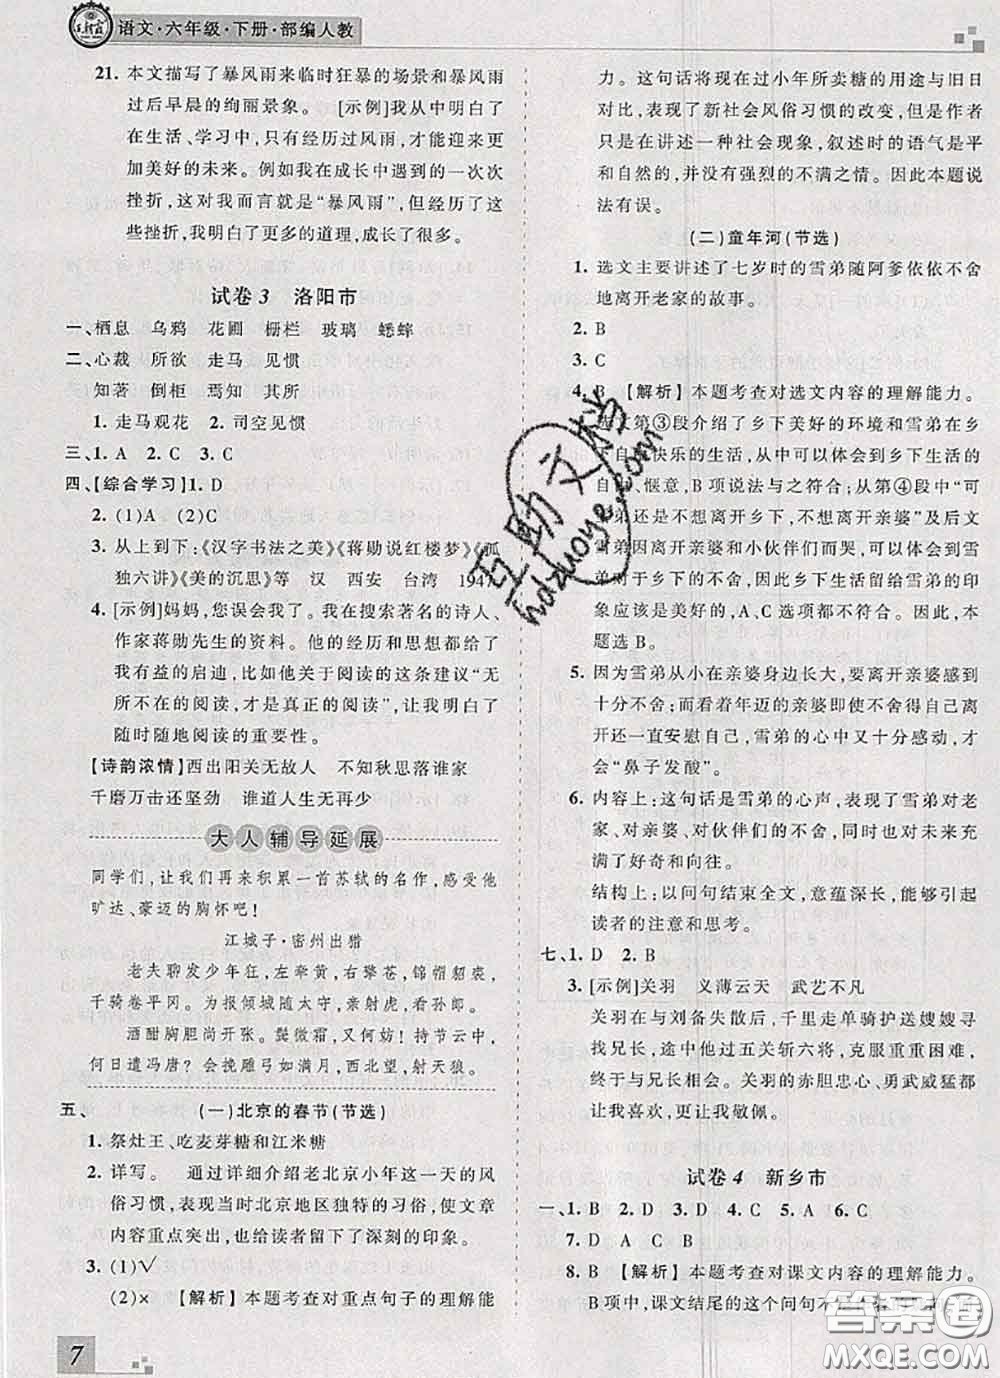 语文·六年级·下册·部编人教
21. 本文描写了暴风雨来临时狂暴的场景和暴风雨
过后早晨的绚丽景象。[示例]我从中明白了
在生活、学习中,只有经历过风雨,才能迎来更
加美好的未来。例如我在成长中遇到的一次次
挫折,这对我而言就是“暴风雨”,但经历了这
些挫折,我明白了更多的道理,成长了很多。
试卷3 洛阳市
一、栖息 乌鸦 花圃 栅栏 玻璃 蟋蟀
二、心裁 所欲 走马 见惯
知著 倒柜 焉知 其所
1. 走马观花 2. 司空见惯
三、1. A 2. C 3. C
四、[综合学习]1. D
2. (1)A (2)C
3. 从上到下:《汉字书法之美》《蒋勋说红楼梦》《孤
独六讲》《美的沉思》等 汉 西安 台湾 1947
4. [示例]妈妈,您误会了。我在搜索著名的诗人、
作家蒋勋先生的资料。他的经历和思想都给了
我有益的启迪,比如他关于阅读的这条建议“无
所不在的阅读,才是真正的阅读”,让我明白了
随时随地阅读的重要性。
[诗韵浓情]西出阳关无故人 不知秋思落谁家
千磨万击还坚劲 谁道人生无再少
大人辅导延展
同学们,让我们再来积累一首苏轼的名作,感受他
旷达、豪迈的胸怀吧!
江城子·密州出猎
老夫聊发少年狂,左牵黄,右擎苍,锦帽貂裘,
千骑卷平冈。为报倾城随太守,亲射虎,看孙郎。
酒酣胸胆尚开张。鬓微霜,又何妨!持节云中,
何日遣冯唐?会挽雕弓如满月,西北望,射天狼。
五、 (一)北京的春节(节选)
1. 祭灶王、吃麦芽糖和江米糖
2. 详写。 通过详细介绍老北京小年这一天的风
俗习惯,表现当时北京地区独特的习俗,使文章
内容重点突出,也给读者留下了深刻的印象。
3. (1)√
(2)× [解析]本题考查对重点句子的理解能
力。这句话将现在过小年所卖糖的用途与旧日
对比,表现了新社会风俗习惯的改变,但是作者
只是在讲述一种社会现象,叙述时的语气是平
和自然的,并没有强烈的不满之情。因此本题说
法有误。
(二)童年河(节选)
1. 选文主要讲述了七岁时的雪弟随阿爹依依不舍
地离开老家的故事。
2. B
3. C
4. B [解析]本题考查对选文内容的理解能力。
选文第③段介绍了乡下美好的环境和雪弟在乡
下自由快乐的生活,从中可以体会到乡下生活的
自由、惬意,B项说法与之符合;从第④段“可
雪弟还是不想离开乡下,不想离开亲婆”及后文
雪弟因离开亲婆和小伙伴们而哭,可以看出雪
弟对于乡下的不舍,因此乡下生活留给雪弟的
印象应该是美好的,A、C选项都不符合。因此,本
题选B。
5. 因为雪弟从小在亲婆身边长大,要离开亲婆感到
十分不舍;而看到年迈的亲婆为了避免自己因
离开还一直安慰自己,雪弟的心中又十分感动,
才会“鼻子发酸”。
6. 内容上:这句话是雪弟的心声,表现了雪弟对老
家、对亲婆、对伙伴们的不舍,同时也对未来充
满了好奇和向往。
结构上:以问句结束全文,意蕴深长,能够引起
读者的注意和思考。
七、1. D 2. B
3. [示例]关羽 义薄云天 武艺不凡
关羽在与刘备失散后,千里走单骑护送嫂嫂寻
找兄长,途中他过五关斩六将,克服重重困难,
终于与兄长相会。关羽的赤胆忠心、勇武威猛都
让我喜欢,更让我敬佩。
试卷4 新乡市
一、1. B 2. D 3. D 4. C 5. A 6. C
7. D A C B
8. B [解析]本题考查对课文内容的理解能力。
B项中,课文结尾的这个问句不
7
互助文档
hdzuoye.com
答案圈
MXQE.COM